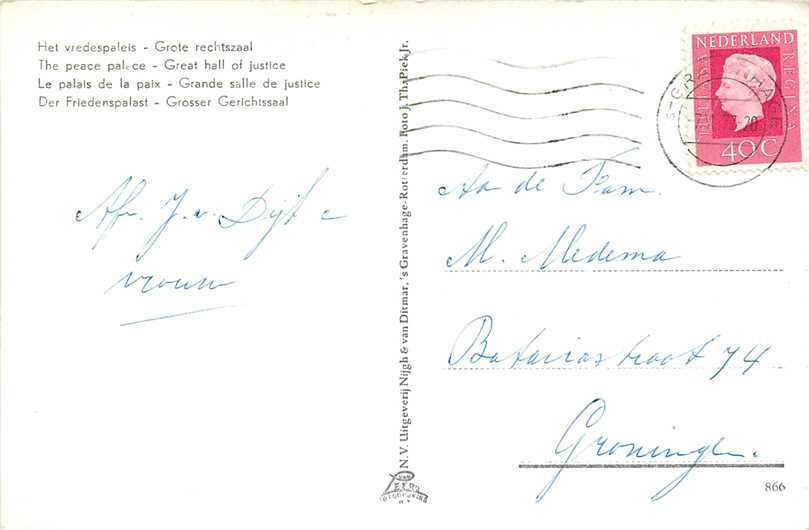 Het vredespaleis - Grote rechtszaal
The peace palace - Great hall of justice
Le palais de la paix - Grande salle de justice
Der Friedenspalast - Grosser Gerichtssaal
Afz. J. v. Dijk e
vrouw
N.V. Uitgeverij Nijgh & van Ditmar, 's Gravenhage-Rotterdam. Foto J. Th. Piek Jr.
NEDERLAND
REGINA
40 C
Aa de Fam.
M. Medema
Bataviastraat 74
Groningen.
866